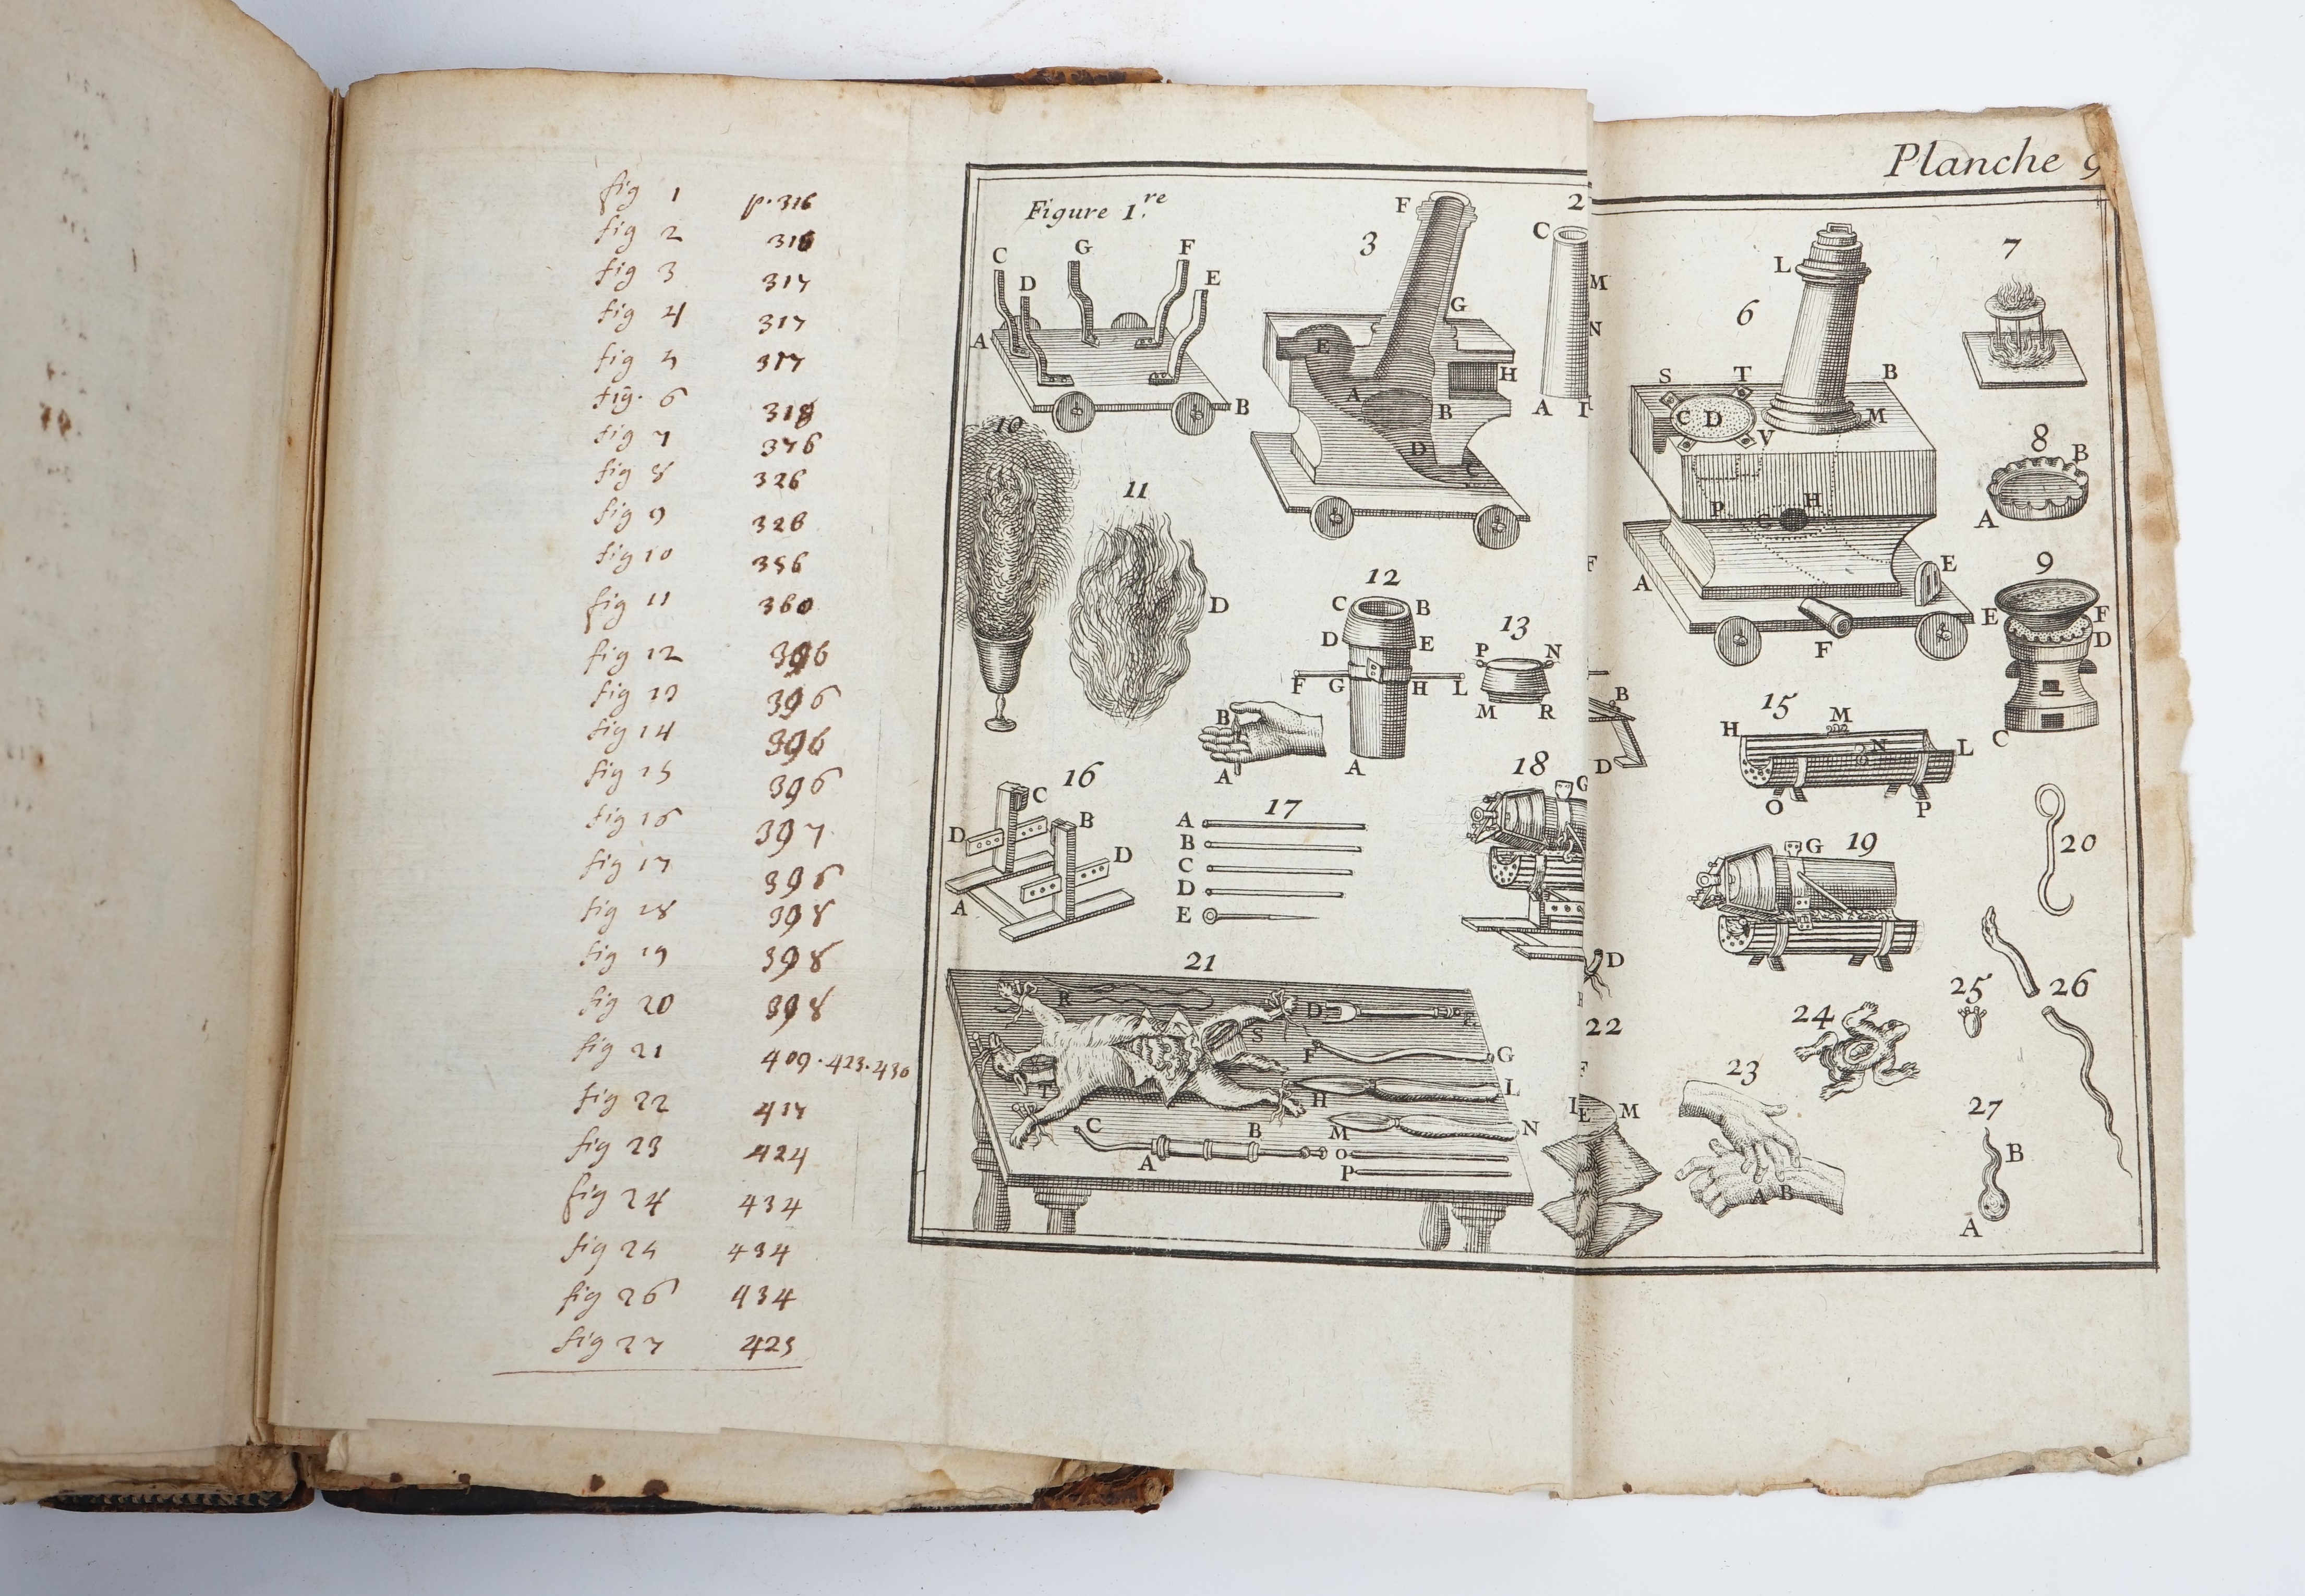 fig 1 p. 316
fig 2 316
fig 3 317
fig 4 317
fig 5 317
fig. 6 318
fig 7 376
fig 8 326
fig 9 326
fig 10 356
fig 11 360
fig 12 396
fig 13 396
fig 14 396
fig 15 396
fig 16 397
fig 17 396
fig 18 398
fig 19 398
fig 20 398
fig 21 409. 423. 430
fig 22 417
fig 23 424
fig 24 434
fig 25 434
fig 26 434
fig 27 425
Planche 9
Figure 1.re
C G F
D E
A
B
3
F
G
E
H
A B
D
C
2
C
M
N
A I
6
L
S T B
C D M
V
P H
G
A E
F
7
8
B
A
9
E F
D
C
10
11
D
F
12
C B
D E
F G H L
B
A A
13
P N
M R
B
D
15
H M
N L
O P
16
C
D B
D
A
17
A
B
C
D
E
18
G
D
19
G
20
21
R
D
S
F G
T H L
C B M N
A O
P
22
F
L E M
23
A B
24
25
26
27
B
A